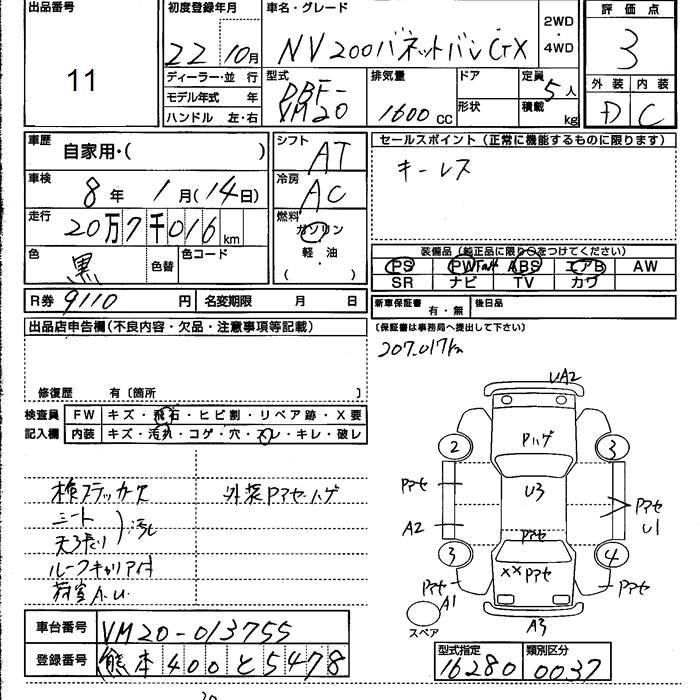 出品番号
11
初度登録年月
22 10月
車名・グレード
NV200バネットバンGX
2WD
・
4WD
評価点
3
外装 内装
D C
ディーラー・並 行
モデル年式 年
ハンドル 左・右
型式
DBF-
VM20
排気量
1600 cc
ドア
形状
定員
5人
積載
kg
車歴
自家用・( )
車検
8年 1月(14日)
走行
20万7千016km
色
黒
色替
色コード
シフト
AT
冷房
AC
燃料
ガソリン
・
軽・油
( )
セールスポイント(正常に機能するものに限ります)
キーレス
装備品(純正品に限り○をつけてください)
PS PW ABS エアB AW
SR ナビ TV カワ
R券 9110円
名変期限 月 日
新車保証書
有・無
後日品
(保証書は事務局へ提出して下さい)
出品店申告欄(不良内容・欠品・注意事項等記載)
207.017km
修復歴 有〔箇所 〕
検査員
記入欄
FW キズ・飛石・ヒビ割・リペア跡・X要
内装 キズ・汚れ・コゲ・穴・スレ・キレ・破レ
検ステッカー欠
シート
天張り
汚れ
ルーフキャリア付
荷室A.U.
外装Pアセ・ハゲ
UA2
Pハゲ
2
3
Pアセ
U3
A2
Pアセ
U1
Pアセ
3
4
××Pアセ
Pアセ
A1
Pアセ
A3
スペア
車台番号
VM20-013755
登録番号
熊本400と5478
型式指定
16280
類別区分
0037